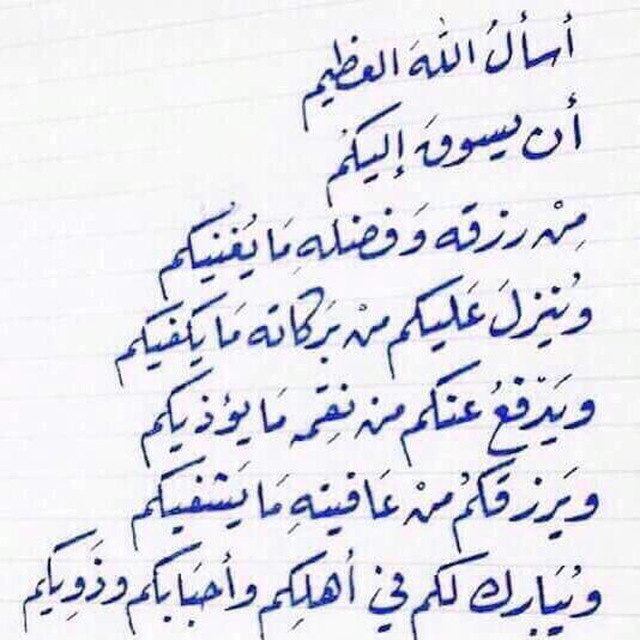 أسألُ اللهَ العظيم
أن يسوقَ إليكُم
مِنْ رزقه وَفضلهِ مَا يُغنيكم
وَيُنزلَ عَليكم منْ بَركاته مَا يَكفيكم
ويَدْفعُ عنكم من نِقمه مَا يؤذيكم
ويَرزقكُم منْ عَافيتهِ مَا يَشفيكم
ويُبَارك لكم في أهلِكم وأحبَابكم وذَوِيكم